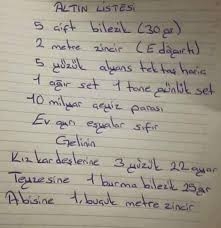 ALTIN LİSTESİ
5 çift bilezik (30 gr)
2 metre zincir (Edigarlı)
5 yüzük alyans tektaş hariç
1 ağır set 1 tane günlük set
10 milyar çeyiz parası
Ev gurı eşyalar sıfır
Gelinin
Kız kardeşlerine 3 yüzük 22 ayar
Teyzesine 1 burma bilezik 25 gr
Abisine 1, buçuk metre zincir